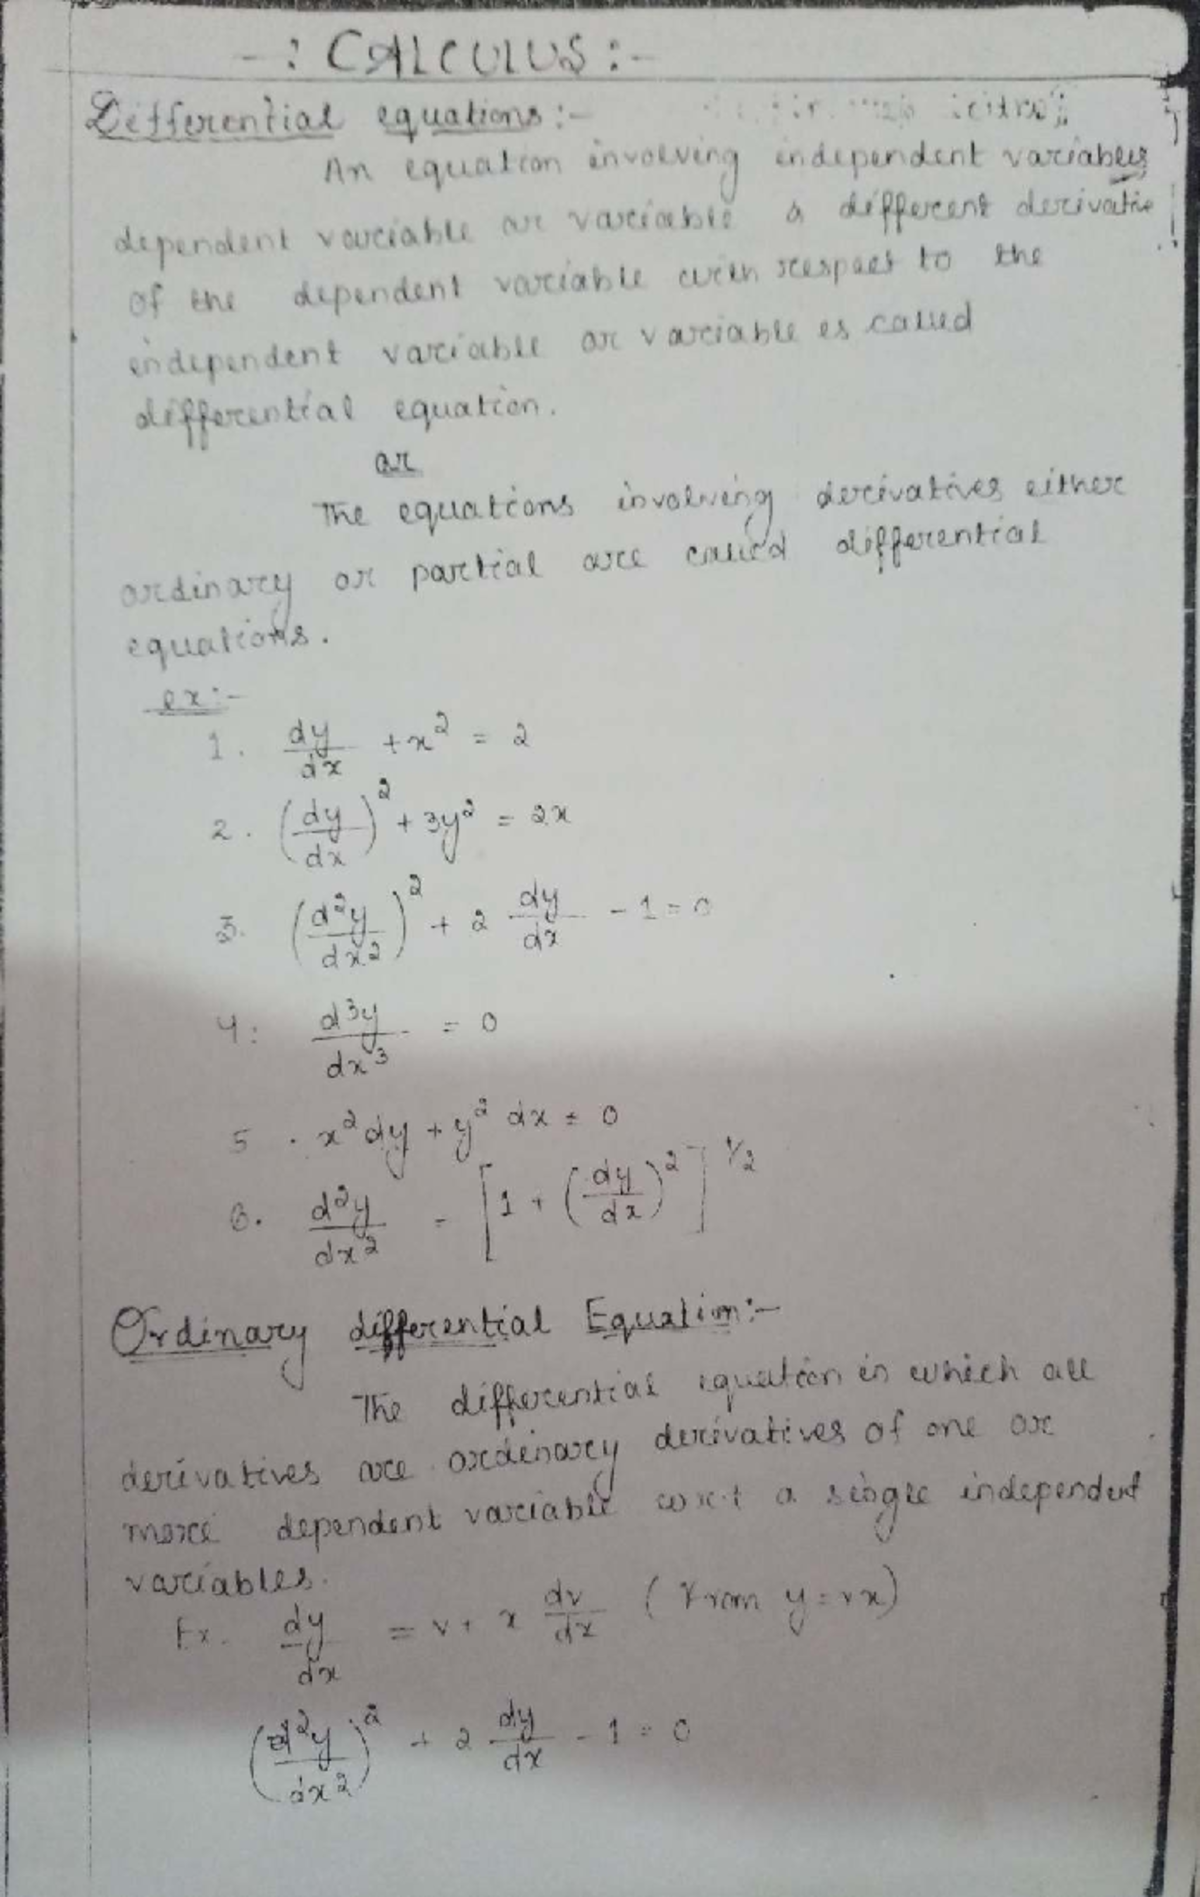 -: CALCULUS :-
Differential equations :-
An equation involving independent variables
dependent variable or variable & different derivative
of the dependent variable with respect to the
independent variable or variable is called
differential equation.
or
The equations involving derivatives either
ordinary or partial are called differential
equations.
ex :-
1. dy/dx + x² = 2
2. (dy/dx)² + 3y² = 2x
3. (d²y/dx²)² + 2 dy/dx - 1 = 0
4. d³y/dx³ = 0
5. x² dy + y² dx = 0
6. d²y/dx² = [1 + (dy/dx)²]^1/2
Ordinary differential Equation :-
The differential equation in which all
derivatives are ordinary derivatives of one or
more dependent variable w.r.t a single independent
variables.
Ex. dy/dx = v + x dv/dx (From y = vx)
(d²y/dx²)² + 2 dy/dx - 1 = 0